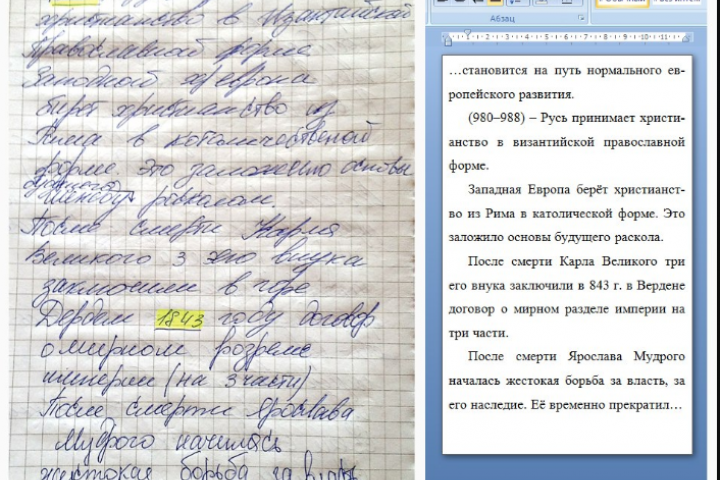 христианство в Византийской
Православной форме
Западной Европа
берёт христианство из
Рима в католической
форме. Это заложено основы
будущего
расколом.
После смерти Карла
Великого 3 его внука
заключили в горе
1843 году договор
о мирном
империи (на 3 части)
После смерти Ярослава
Мудрого началась
жестокая борьба за власть
Абзац
…становится на путь нормального ев-
ропейского развития.
(980–988) – Русь принимает христи-
анство в византийской православной
форме.
Западная Европа берёт христианст-
во из Рима в католической форме. Это
заложило основы будущего раскола.
После смерти Карла Великого три
его внука заключили в 843 г. в Вердене
договор о мирном разделе империи на
три части.
После смерти Ярослава Мудрого
началась жестокая борьба за власть, за
его наследие. Её временно прекратил…